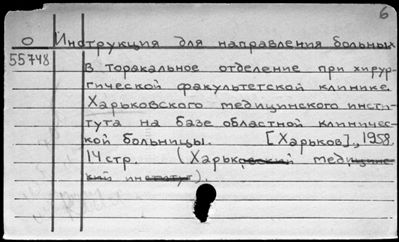 6
О Инструкция для направления больных
55748
в торакальное отделение при хирур-
гической факультетской клинике
Харьковского медицинского инсти-
тута на базе областной клиничес-
кой больницы. [Харьков], 1958.
14 стр. (Харьковский медицинс-
кий институт).